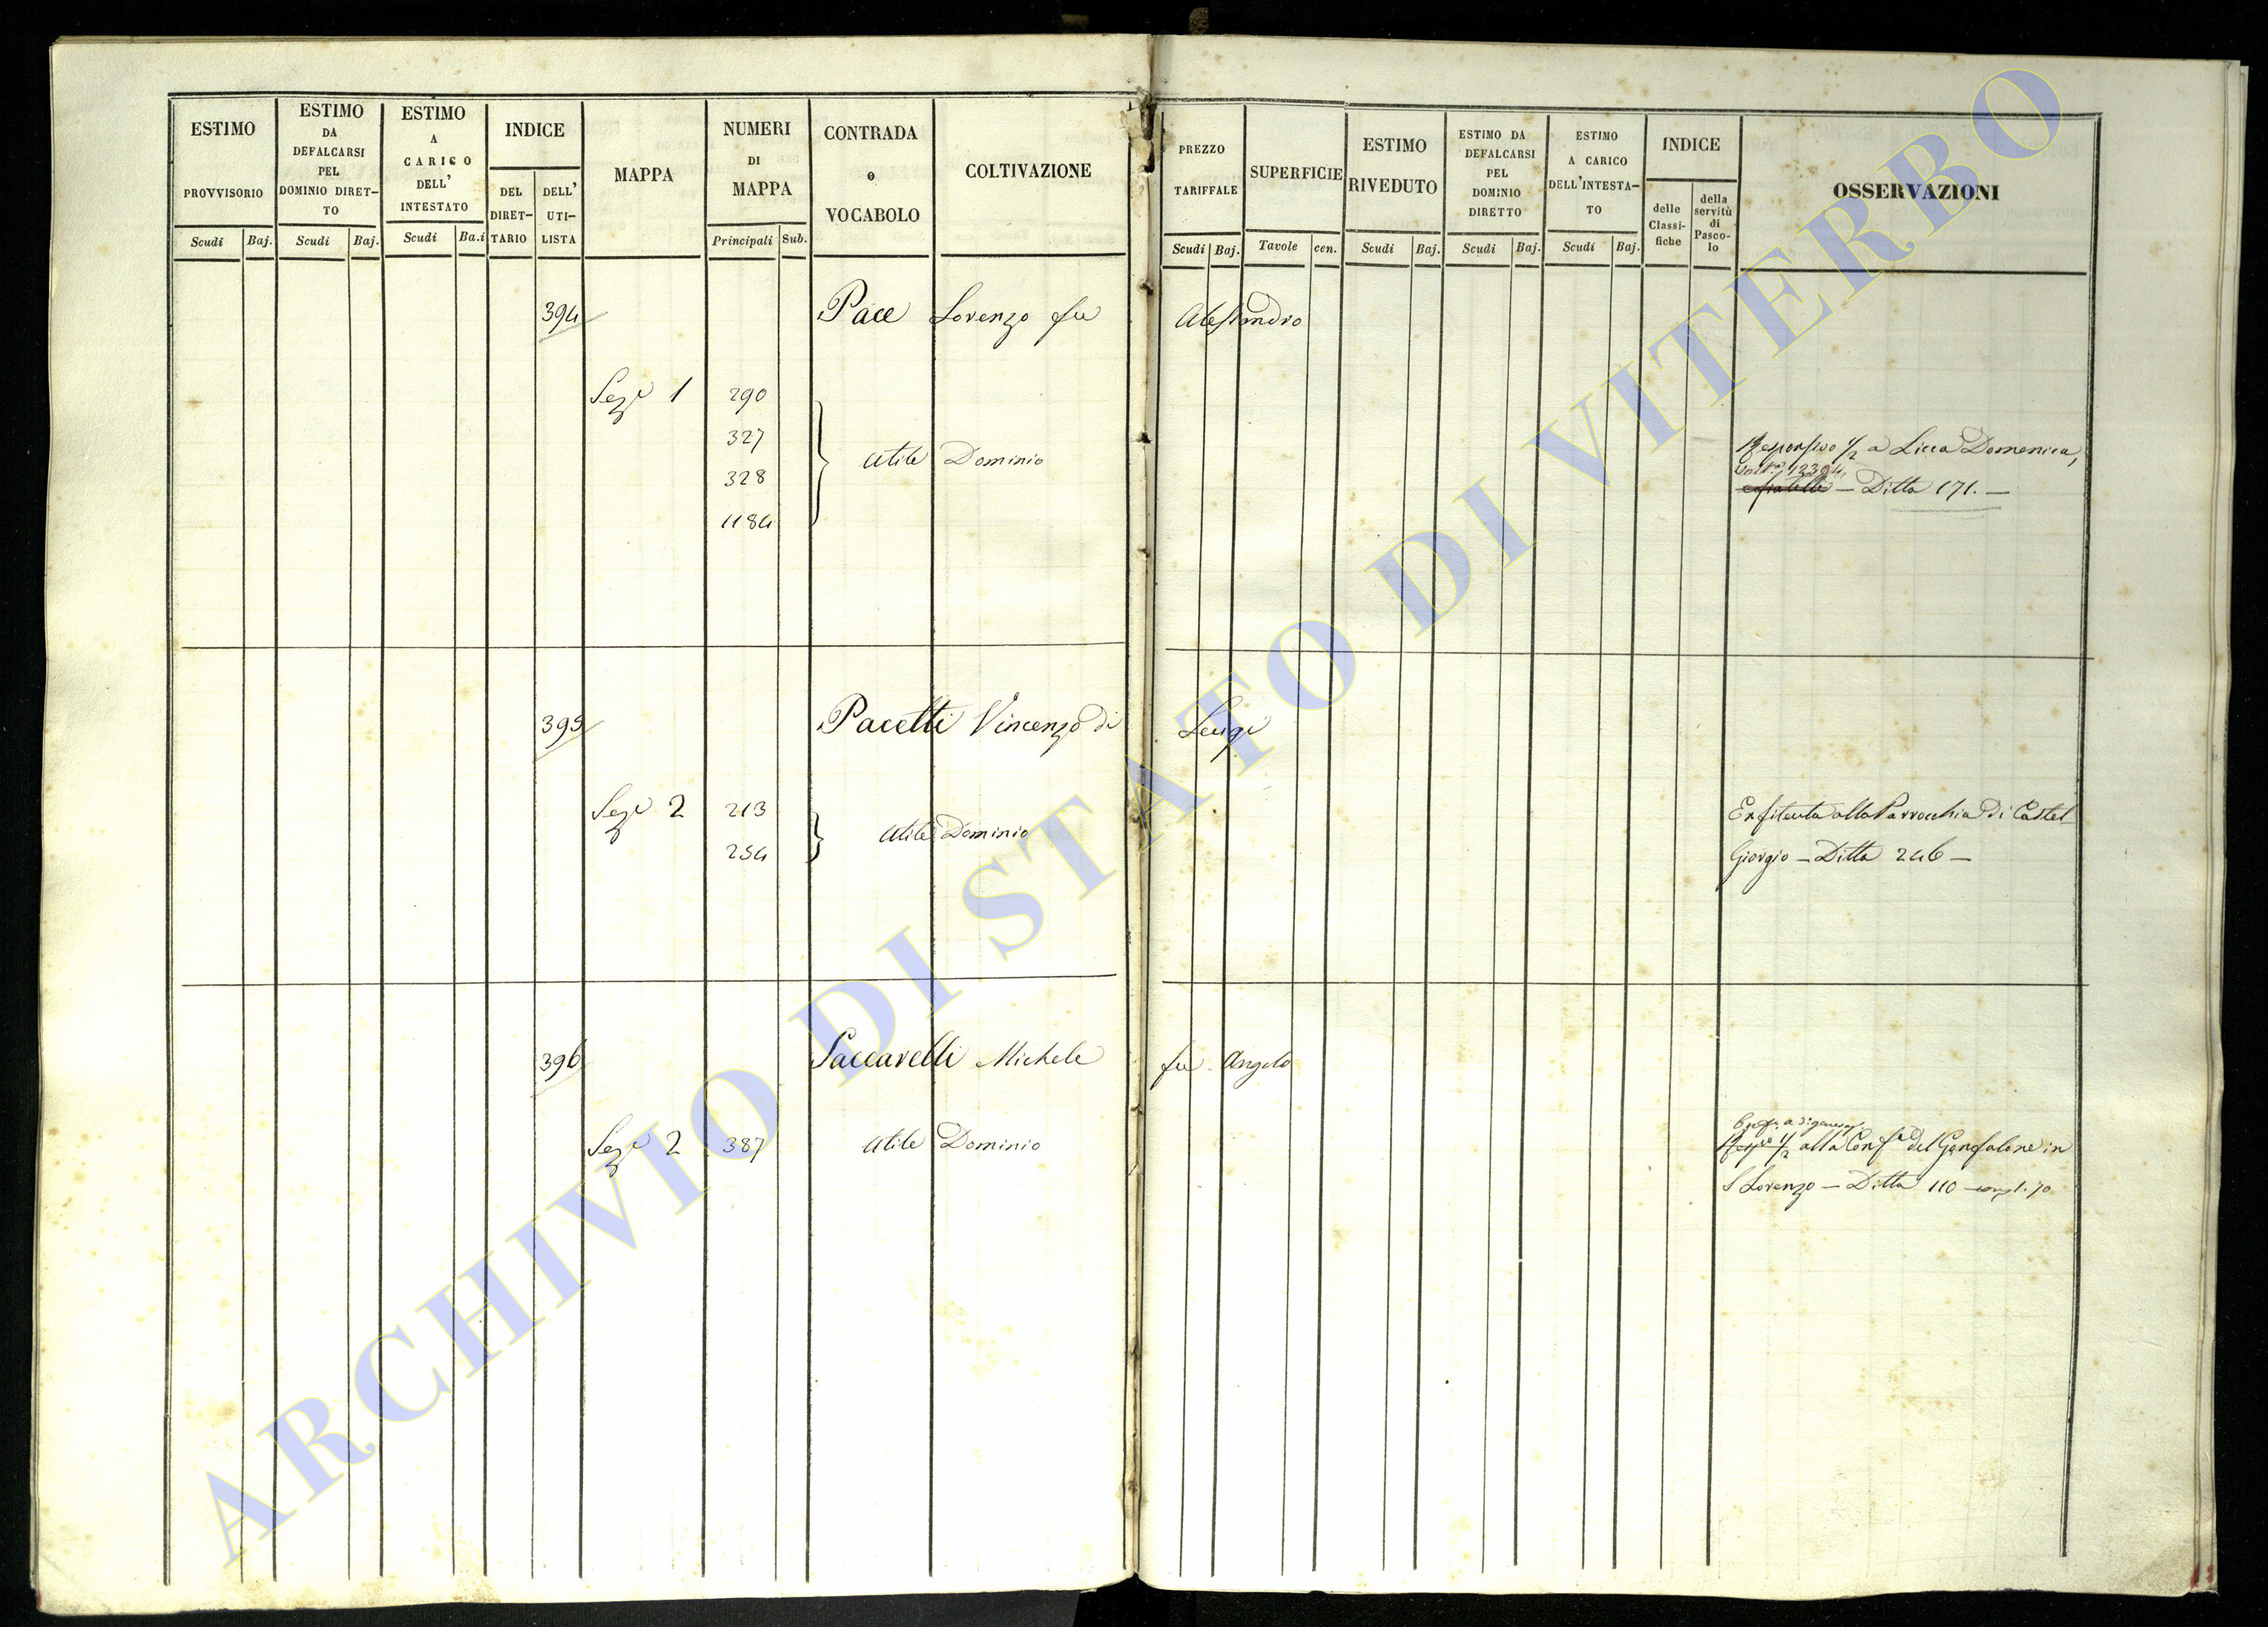 ESTIMO
PROVVISORIO
Scudi Baj.
ESTIMO
DA
DEFALCARSI
PEL
DOMINIO DIRET-
TO
Scudi Baj.
ESTIMO
A
CARICO
DELL'
INTESTATO
Scudi Ba.i
INDICE
DEL
DIRET-
TARIO
DELL'
UTI-
LISTA
MAPPA
NUMERI
DI
MAPPA
Principali Sub.
CONTRADA
o
VOCABOLO
COLTIVAZIONE
PREZZO
TARIFFALE
Scudi Baj.
SUPERFICIE
Tavole cen.
ESTIMO
RIVEDUTO
Scudi Baj.
ESTIMO DA
DEFALCARSI
PEL
DOMINIO
DIRETTO
Scudi Baj.
ESTIMO
A CARICO
DELL'INTESTA-
TO
Scudi Baj.
INDICE
delle
Classi-
fiche
della
servitù
di
Pasco-
lo
OSSERVAZIONI
394 Pace Lorenzo fu Alessandro
Sez.e 1 290
327
Utile Dominio
328
1184
Responsivo 1/2 a Licca Domenica,
Ditta 171.
395 Pacelli Vincenzo di Luigi
Sez.e 2 213
Utile Dominio
254
Enfiteuta alla Parrocchia di Castel
Giorgio - Ditta 246 -
396 Paccarelli Michele fu Angelo
Sez.e 2 387 Utile Dominio
1/2 alla Conf.a del Gonfalone in
S Lorenzo - Ditta 110
ARCHIVIO DI STATO DI VITERBO